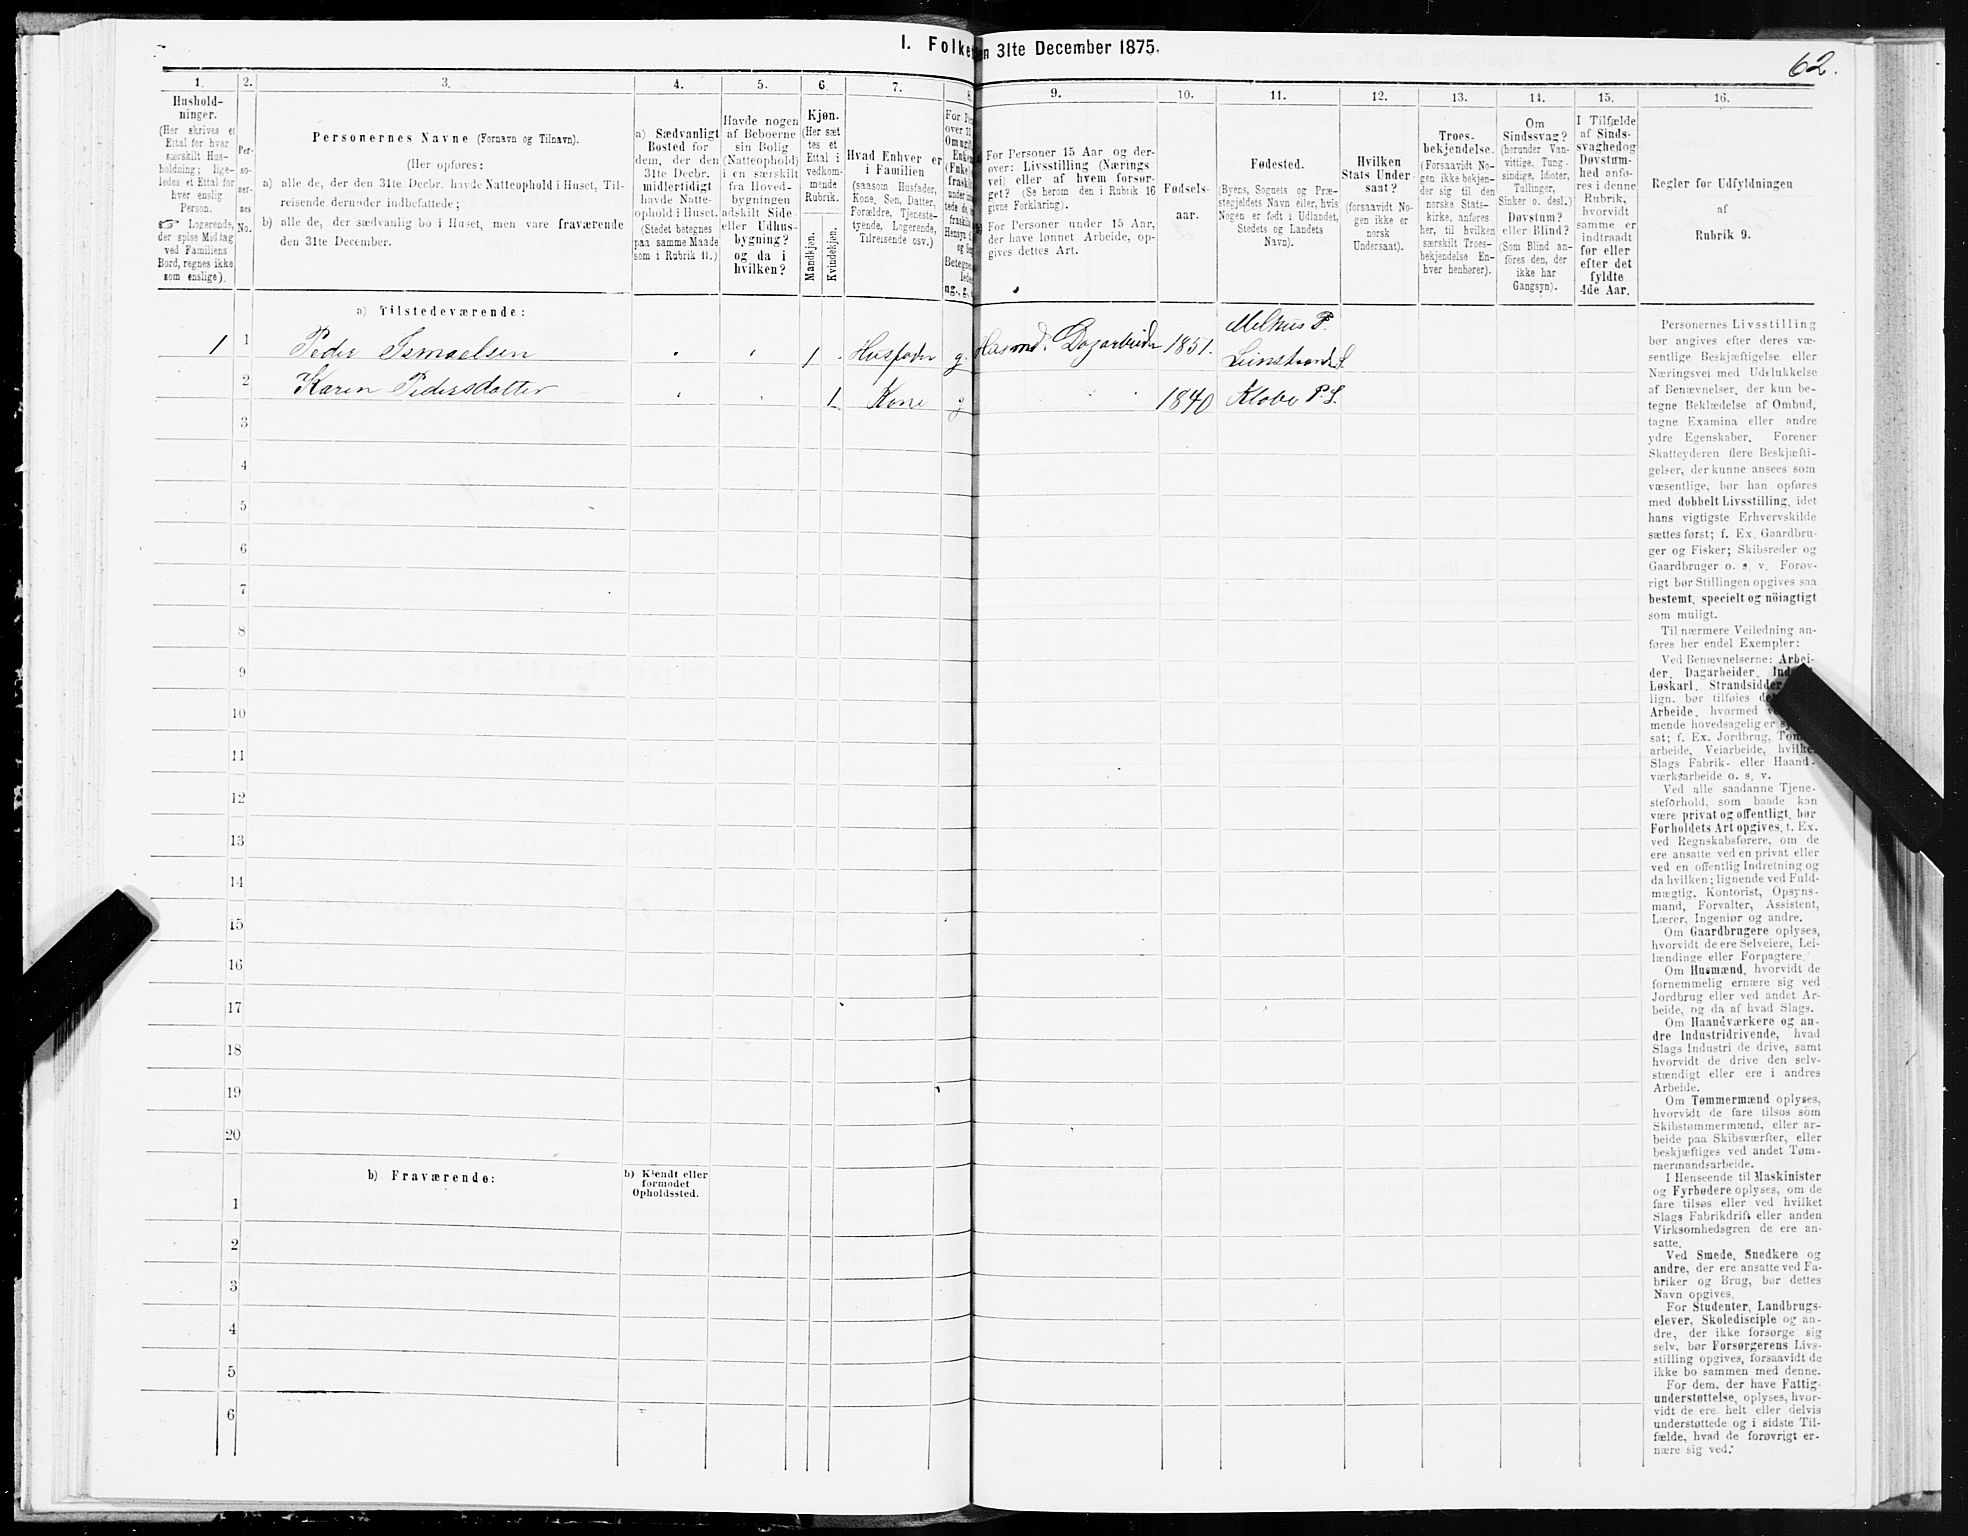 I. Folke
en 31te December 1875.
62.
1.
2.
3.
4.
5.
6.
7.
8.
9.
10.
11.
12.
13.
14.
15.
16.
Hushold-
ninger.
(Her skrives et
Ettal for hver
særskilt Hus-
holdning; lige-
ledes et Ettal for
hver enslig
Person.
☞ Logerende,
der spise Middag
ved Familiens
Bord, regnes ikke
som enslige).
Per-
so-
ner-
nes
No.
Personernes Navne (Fornavn og Tilnavn).
(Her opføres:
a) alle de, der den 31te Decbr. havde Natteophold i Huset, Til-
reisende derunder indbefattede;
b) alle de, der sædvanlig bo i Huset, men vare fraværende
den 31te December.
a) Sædvanligt
Bosted for
dem, der den
31te Decbr.
midlertidigt
havde Natte-
ophold i Huset.
(Stedet betegnes
paa samme Maade
som i Rubrik 11.)
Havde nogen
af Beboerne
sin Bolig
(Natteophold)
i en særskilt
fra Hoved-
bygningen
adskilt Side-
eller Udhus-
bygning?
og da i
hvilken?
Kjøn.
(Her sæt
tes et
Ettal i
vedkom-
mende
Rubrik.
Mandkjøn.
Kvindekjøn.
Hvad Enhver er
i Familien
(saasom Husfader,
Kone, Søn, Datter,
Forældre, Tjeneste-
tyende, Logerende,
Tilreisende osv.)
For Personer 15 Aar og der-
over: Livsstilling (Nærings
vei) eller af hvem forsør-
get? (Se herom den i Rubrik 16
givne Forklaring).
For Personer under 15 Aar,
der have lønnet Arbeide, op-
gives dettes Art.
Fødsels-
aar.
Fødested.
(Byens, Sognets og Præ-
stegjeldets Navn eller, hvis
Nogen er født i Udlandet,
Stedets og Landets
Navn).
Hvilken
Stats Under-
saat?
(forsaavidt No-
gen ikke er
norsk
Undersaat).
Troes-
bekjendelse.
(Forsaavidt No-
gen ikke bekjen-
der sig til den
norske Stats-
kirke, anføres
her, til hvilken
særskilt Troes-
bekjendelse En-
hver henhører).
Om
Sindssvag?
(herunder Van-
vittige, Tung-
sindige, Idioter,
Tullinger,
Sinker o. desl.)
Døvstum?
eller Blind?
(Som Blind an-
føres den, der
ikke har
Gangsyn).
I Tilfælde
af Sinds-
svaghed og
Døvstum-
hed anfø-
res i denne
Rubrik,
hvorvidt
samme er
indtraadt
før eller
efter det
fyldte
4de Aar.
Regler for Udfyldningen
af
Rubrik 9.
a) Tilstedeværende:
1 1 Peder Ismaelsen 1 Husfader g. Husmd. Dagarbeider 1851. Melhus P.
Leinstrand S.
2 Karen Pedersdatter 1 Kone g 1840 Klæbu P.S.
3
4
5
6
7
8
9
10
11
12
13
14
15
16
17
18
19
20
b) Fraværende:
b) Kjendt eller
formodet
Opholdssted.
1
2
3
4
5
6
Personernes Livsstilling
bør angives efter deres væ-
sentlige Beskjæftigelse eller
Næringsvei med Udelukkelse
af Benævnelser, der kun be-
tegne Beklædelse af Ombud,
tagne Examina eller andre
ydre Egenskaber. Forener
Skatteyderen flere Beskjæfti-
gelser, der kunne ansees som
væsentlige, bør han opføres
med dobbelt Livsstilling, idet
hans vigtigste Erhvervskilde
sættes først; f. Ex. Gaardbru-
ger og Fisker; Skibsreder og
Gaardbruger o. s. v. Forøv-
rigt bør Stillingen opgives saa
bestemt, specielt og nöiagtigt
som muligt.
Til nærmere Veiledning an-
føres her endel Exempler:
Ved Benævnelserne: Arbei-
der, Dagarbeider,
Løskarl, Strandsidder
lign. bør tilføies
Arbeide, hvormed
mende hovedsagelig er
sat; f. Ex. Jordbrug,
arbeide, Veiarbeide,
Slags Fabrik- eller Haand-
værksarbeide o. s. v.
Ved alle saadanne Tjene-
steforhold, som baade kan
være privat og offentligt, bør
Forholdets Art opgives, t. Ex.
ved Regnskabsførere, om de
ere ansatte ved en privat eller
ved en offentlig Indretning og
da hvilken; lignende ved Fuld-
mægtig, Kontorist, Opsyns-
mand, Forvalter, Assistent,
Lærer, Ingeniør og andre.
Om Gaardbrugere oplyses,
hvorvidt de ere Selveiere, Lei-
lændinge eller Forpagtere.
Om Husmænd, hvorvidt de
fornemmelig ernære sig ved
Jordbrug eller ved andet Ar-
beide, og da af hvad Slags.
Om Haandværkere og an-
dre Industridrivende, hvad
Slags Industri de drive, samt
hvorvidt de drive den selv-
stændigt eller ere i andres
Arbeide.
Om Tømmermænd oplyses,
hvorvidt de fare tilsøs som
Skibstømmermænd, eller ar-
beide paa Skibsværfter, eller
beskjæftiges ved andet Tøm-
mermandsarbeide.
I Henseende til Maskinister
og Fyrbødere oplyses, om de
fare tilsøs eller ved hvilket
Slags Fabrikdrift eller anden
Virksomhedsgren de ere an-
satte.
Ved Smede, Snedkere og
andre, der ere ansatte ved Fa-
briker og Brug, bør dettes
Navn opgives.
For Studenter, Landbrugs-
elever, Skoledisciple og an-
dre, der ikke forsørge sig
selv, bør Forsørgerens Livs-
stilling opgives, forsaavidt de
ikke bo sammen med denne.
For dem, der have Fattig-
understøttelse, oplyses, hvor-
vidt de ere helt eller delvis
understøttede og i sidste Til-
fælde, hvad de forøvrigt er-
nære sig ved.